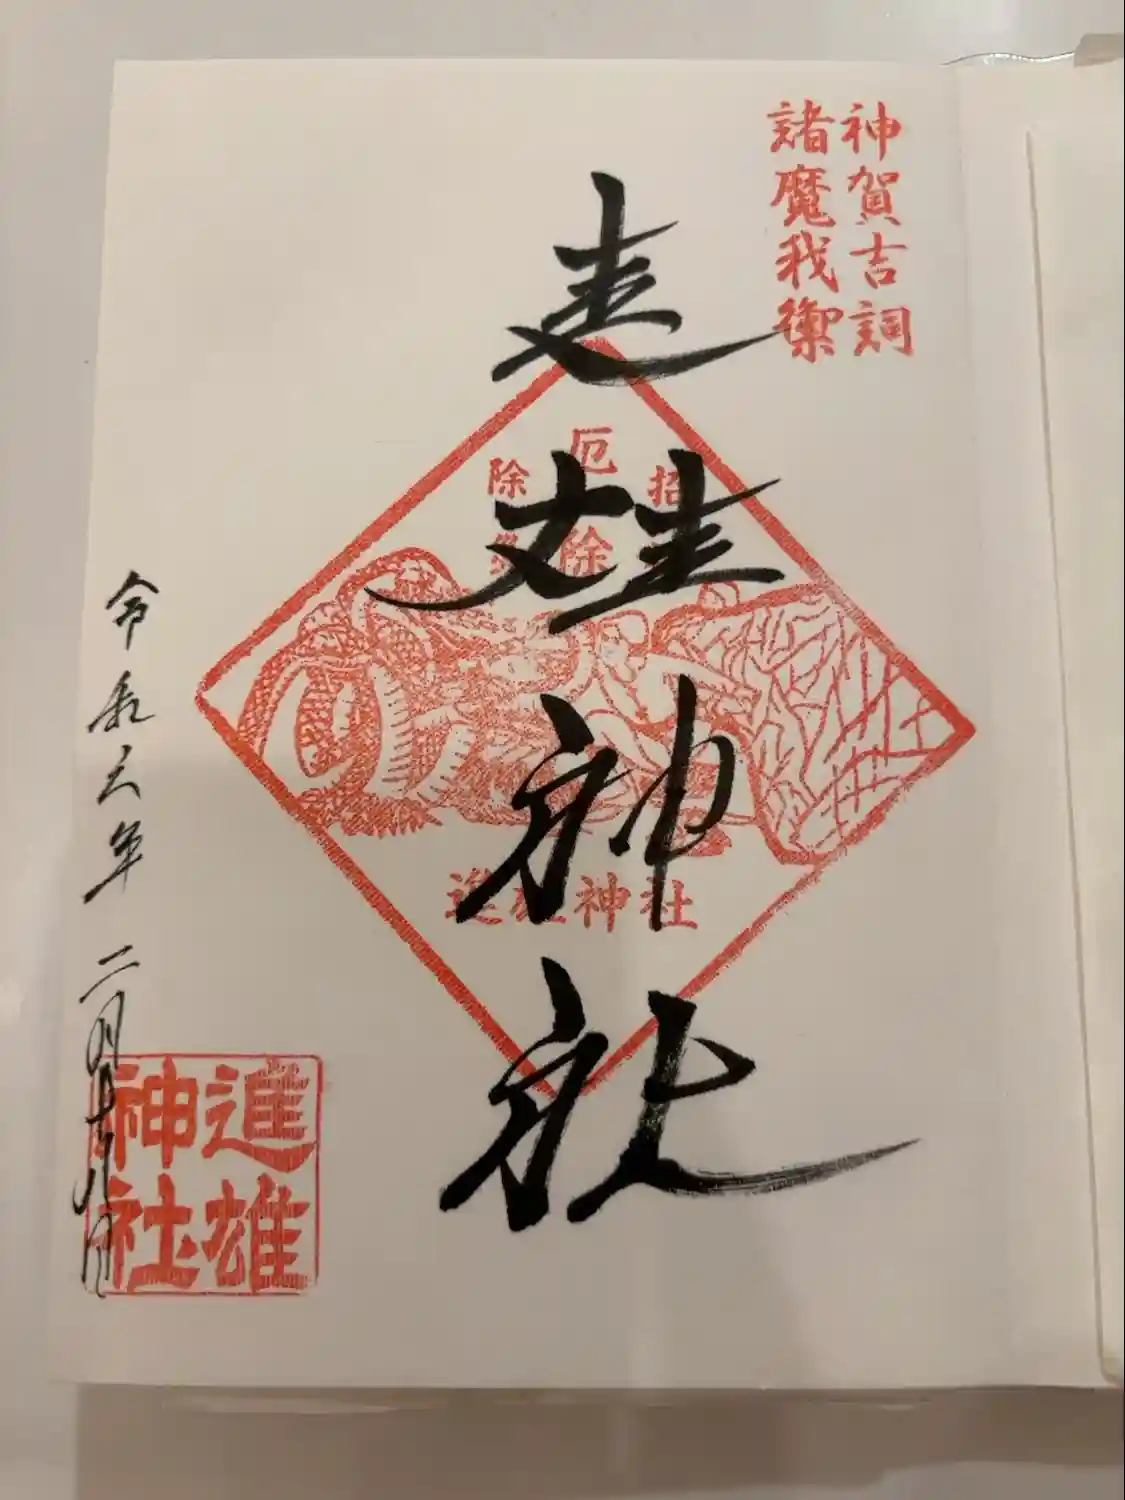 神賀吉詞
諸魔我禦
進雄神社
招
厄除
除災
進雄神社
令和六年二月十八日
進雄
神社